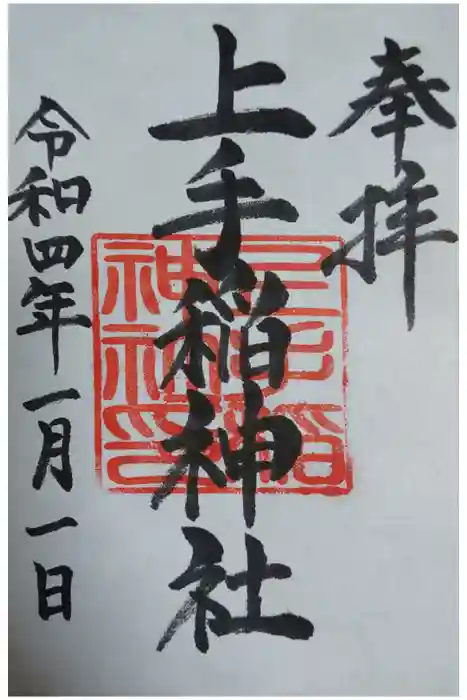 奉拝
上手稲神社
上手稲
神社印
令和四年一月一日